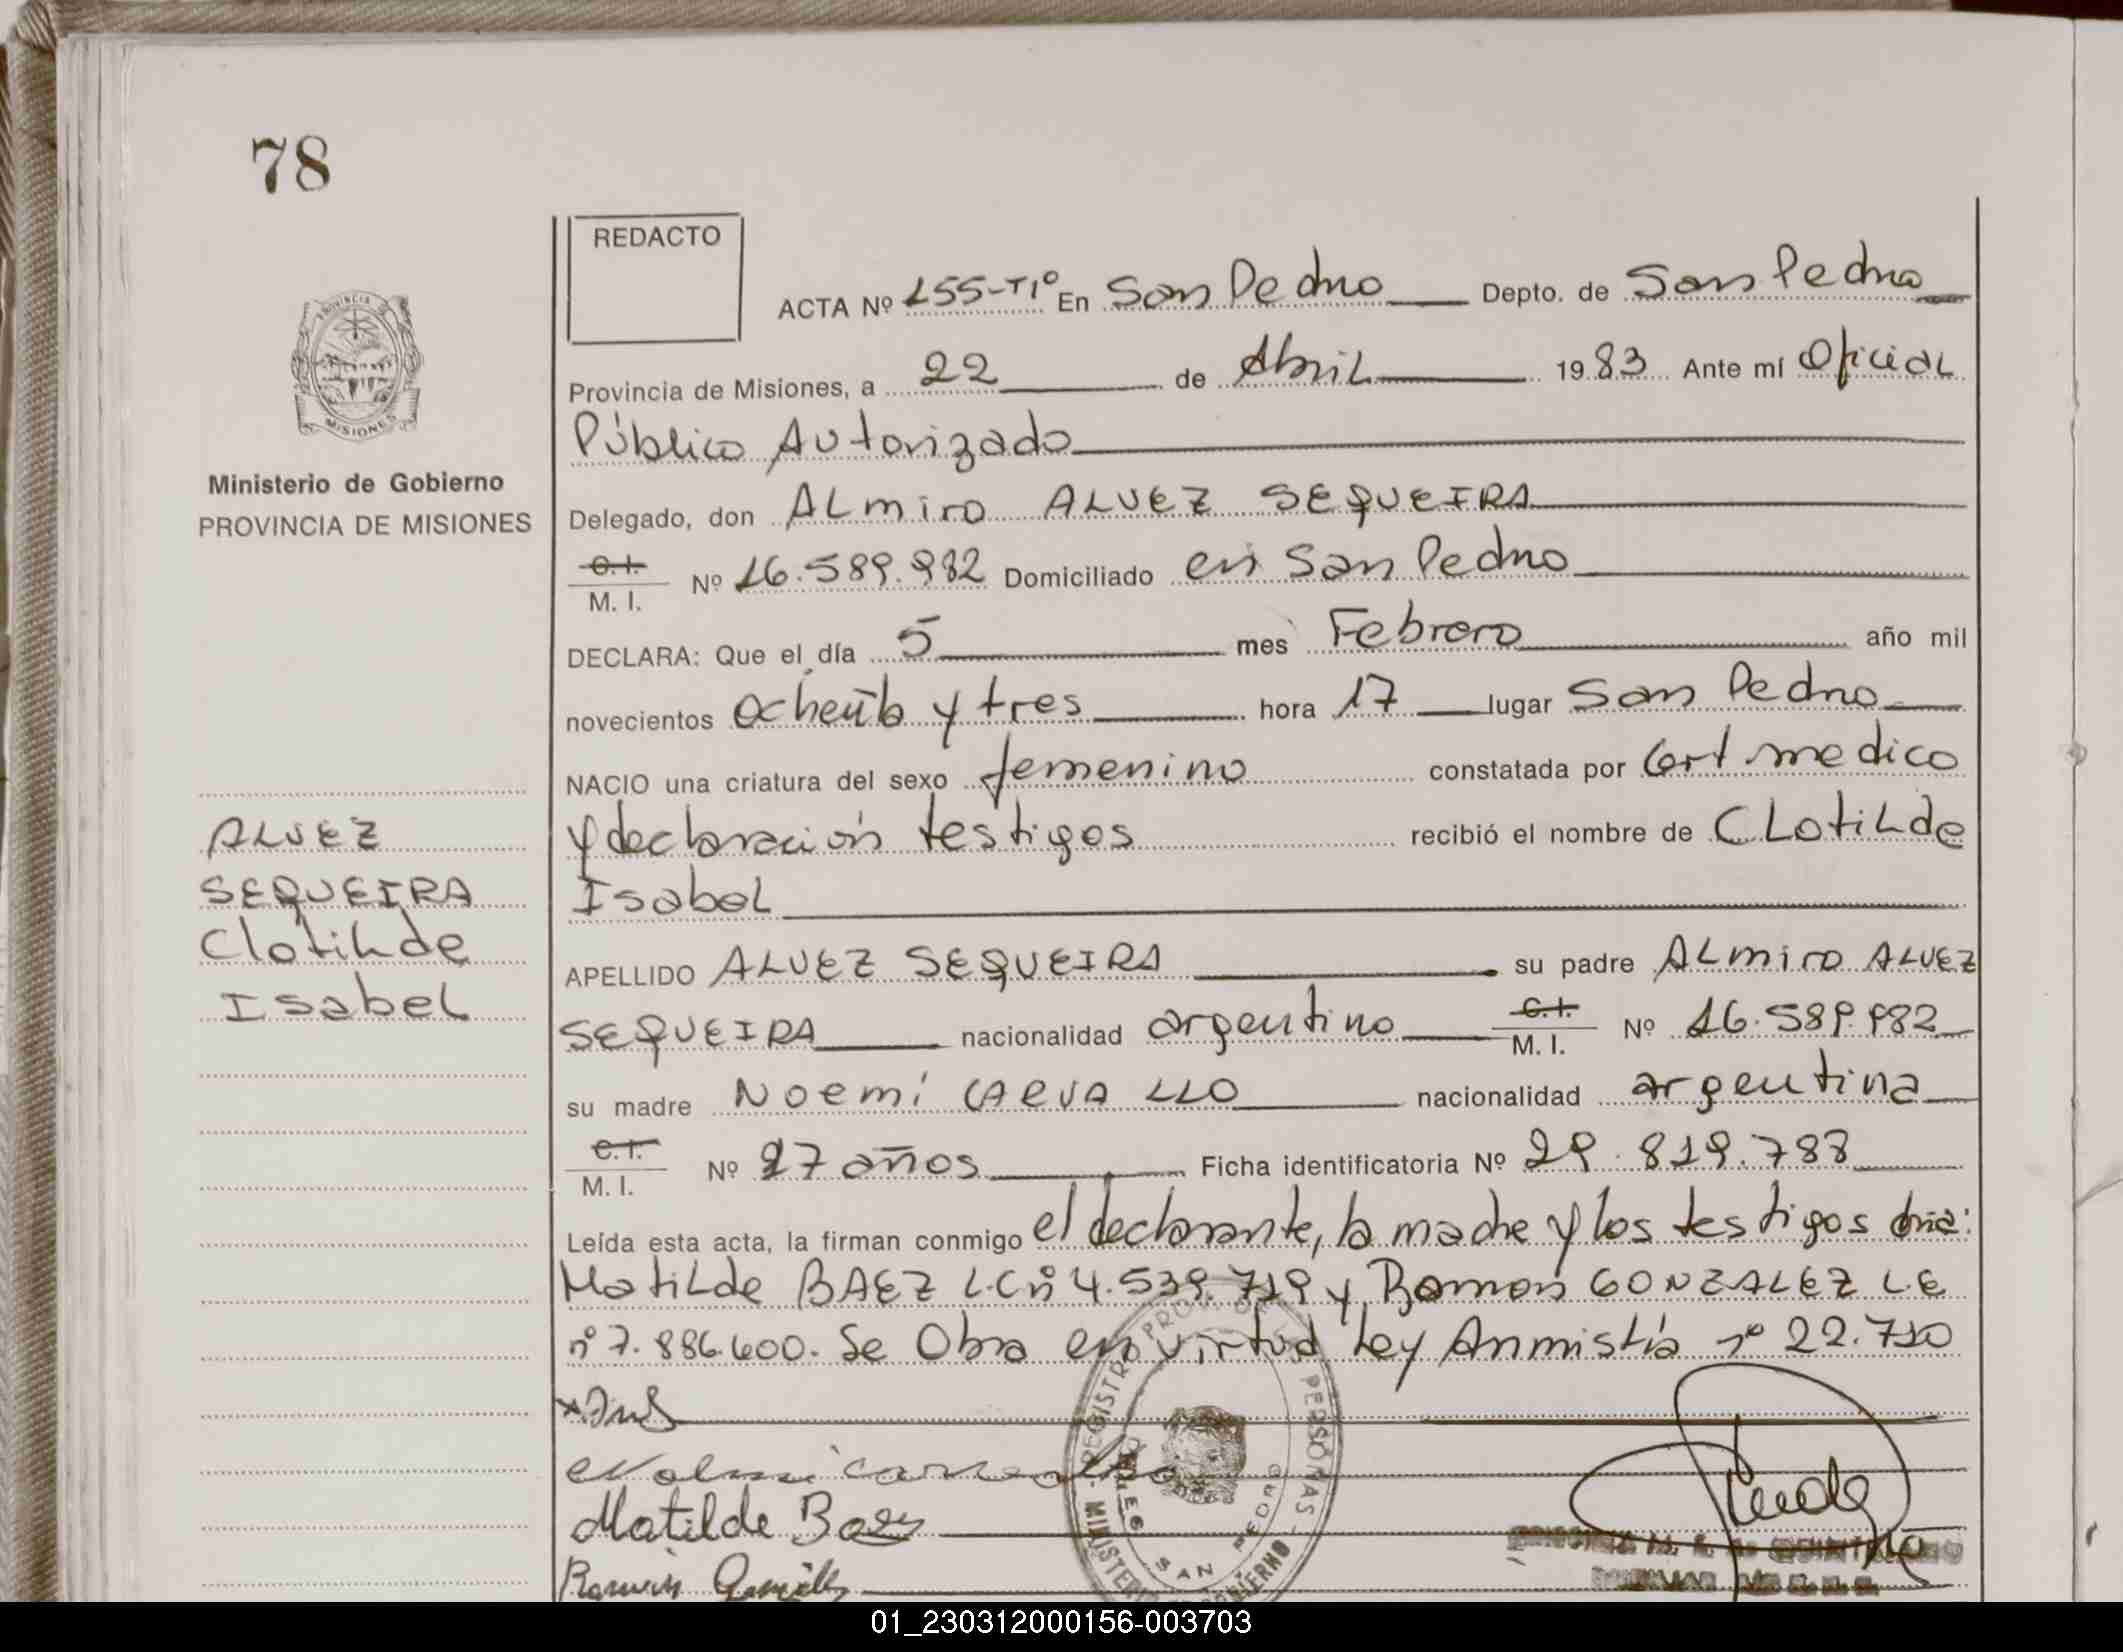 78
REDACTO
ACTA Nº 155-T1º En San Pedro Depto. de San Pedro
Provincia de Misiones, a 22 de Abril 1983 Ante mí Oficial
Público Autorizado
Ministerio de Gobierno
PROVINCIA DE MISIONES
Delegado, don ALmiro ALVEZ SEQUEIRA
C.I. M. I. Nº 16.589.982 Domiciliado en San Pedro
DECLARA: Que el día 5 mes Febrero año mil
novecientos ochenta y tres hora 17 lugar San Pedro
NACIO una criatura del sexo femenino constatada por Cert medico
y declaración testigos recibió el nombre de CLotiLde
IsabeL
ALVEZ
SEQUEIRA
CLotiLde
IsabeL
APELLIDO ALVEZ SEQUEIRA su padre ALmiro ALVEZ
SEQUEIRA nacionalidad argentino C.I. M. I. Nº 16.589.982
su madre Noemí CARVALLO nacionalidad argentina
C.I. M. I. Nº 27 años Ficha identificatoria Nº 29.819.788
Leída esta acta, la firman conmigo el declarante, la madre y los testigos
MatiLde BAEZ L.C nº 4.539.719 y Ramón GONZALEZ L.E
nº 7.886.600. Se Obra en virtud Ley Anmistía nº 22.710
Matilde Baez
Ramón González
REGISTRO PROV. DE LAS PERSONAS
MINISTERIO DE GOBIERNO
SAN PEDRO
PROVINCIA
MISIONES
01_230312000156-003703